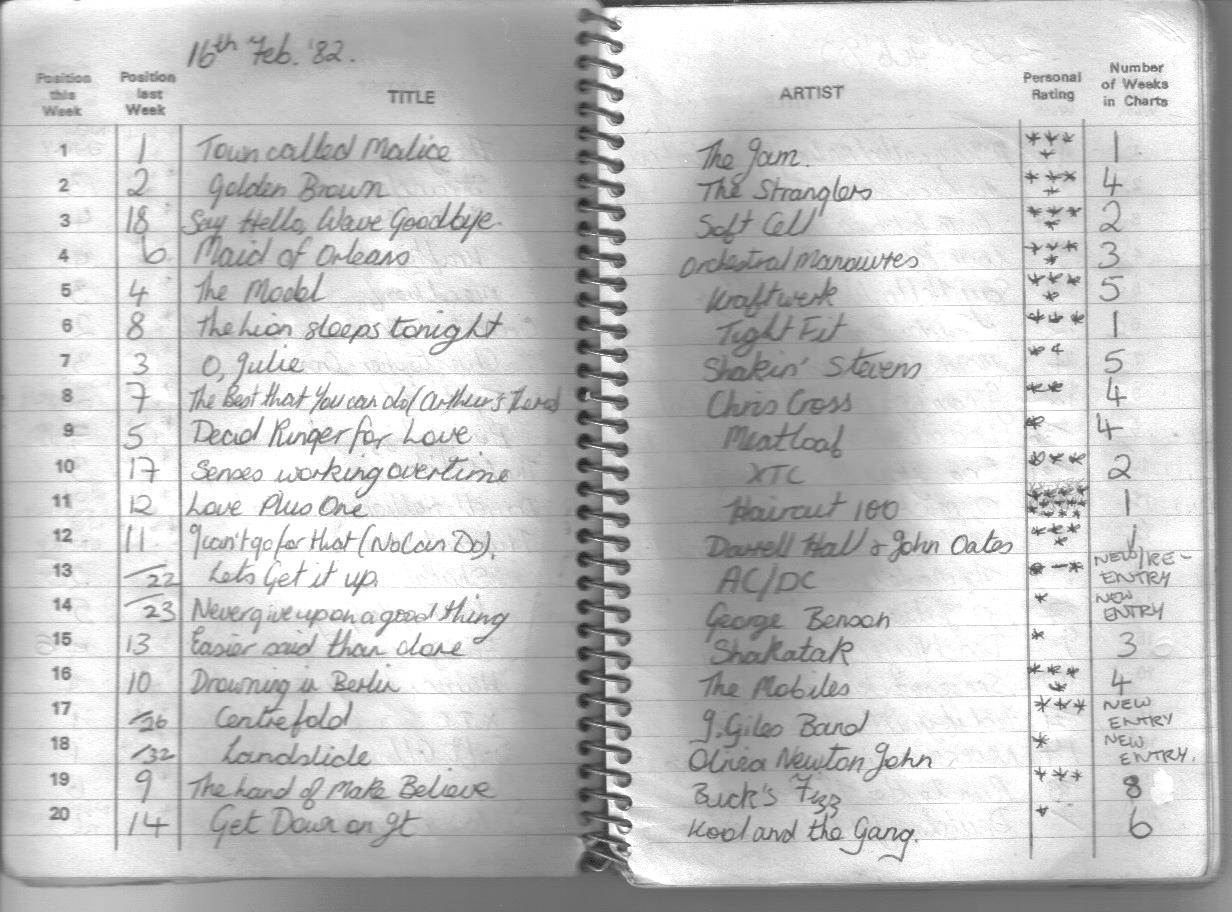 16th Feb. '82.
Position this Week Position last Week TITLE ARTIST Personal Rating Number of Weeks in Charts
1 1 Town called Malice The Jam. **** 1
2 2 Golden Brown The Stranglers **** 4
3 18 Say Hello, Wave Goodbye. Soft Cell **** 2
4 6 Maid of Orleans Orchestral Manouvres **** 3
5 4 The Model Kraftwerk **** 5
6 8 The Lion sleeps tonight Tight Fit *** 1
7 3 O, Julie Shakin' Stevens ** 5
8 7 The Best that You can do (Arthur's Chris Cross ** 4
9 5 Dead Ringer for Love Meatloaf * 4
10 17 Senses working overtime XTC *** 2
11 12 Love Plus One Haircut 100 1
12 11 I can't go for that (No Can Do). Darrell Hall & John Oates **** 1
13 /22 Lets Get it up. AC/DC *** NEW/RE-ENTRY
14 /23 Never give up on a good thing George Benson * NEW ENTRY
15 13 Easier said than done Shakatak * 3
16 10 Drowning in Berlin The Mobiles **** 4
17 /26 Centrefold J. Giles Band *** NEW ENTRY
18 /32 Landslide Olivea Newton John * NEW ENTRY.
19 9 The Land of Make Believe Buck's Fizz *** 8
20 14 Get Down on It Kool and the Gang. * 6